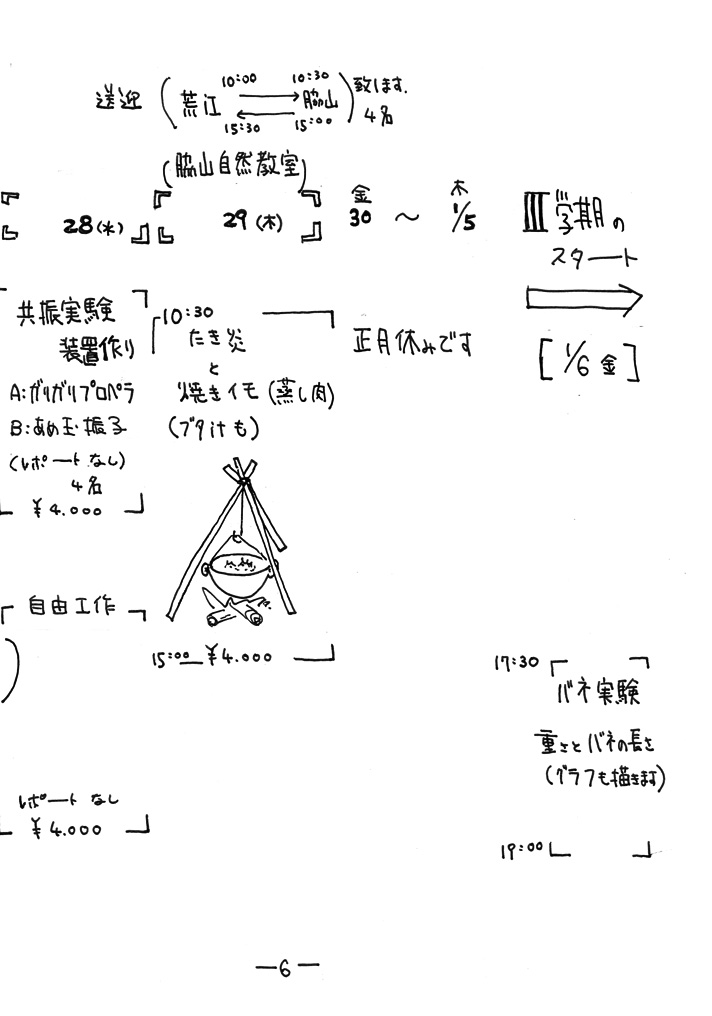 送迎 (荒江 10:00 → 10:30 脇山) 致します。
15:30 ← 15:00 4名
(脇山自然教室)
28(水)
29(木)
金
30 〜
木
1/5
III学期の
スタート
[1/6 金]
共振実験
装置作り
A:ガリガリプロペラ
B:あめ玉振子
(レポートなし)
4名
¥4.000
10:30
たき炎
と
焼きイモ(蒸し肉)
(ブタ汁も)
15:00 ¥4.000
正月休みです
自由工作
レポートなし
¥4.000
17:30
バネ実験
重さとバネの長さ
(グラフも描きます)
19:00
—6—